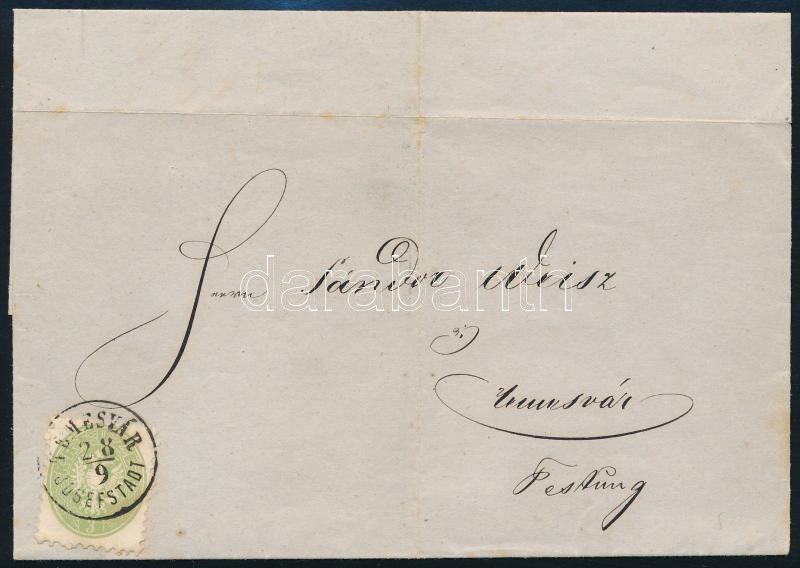 Herrn Sándor Weisz
in
Temesvár
Festung
TEMESVÁR
28
9
JOSEFSTADT
darabanth